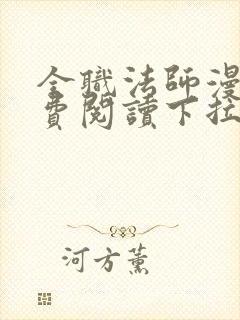 全職法師漫
費閱讀下拉
河方薰